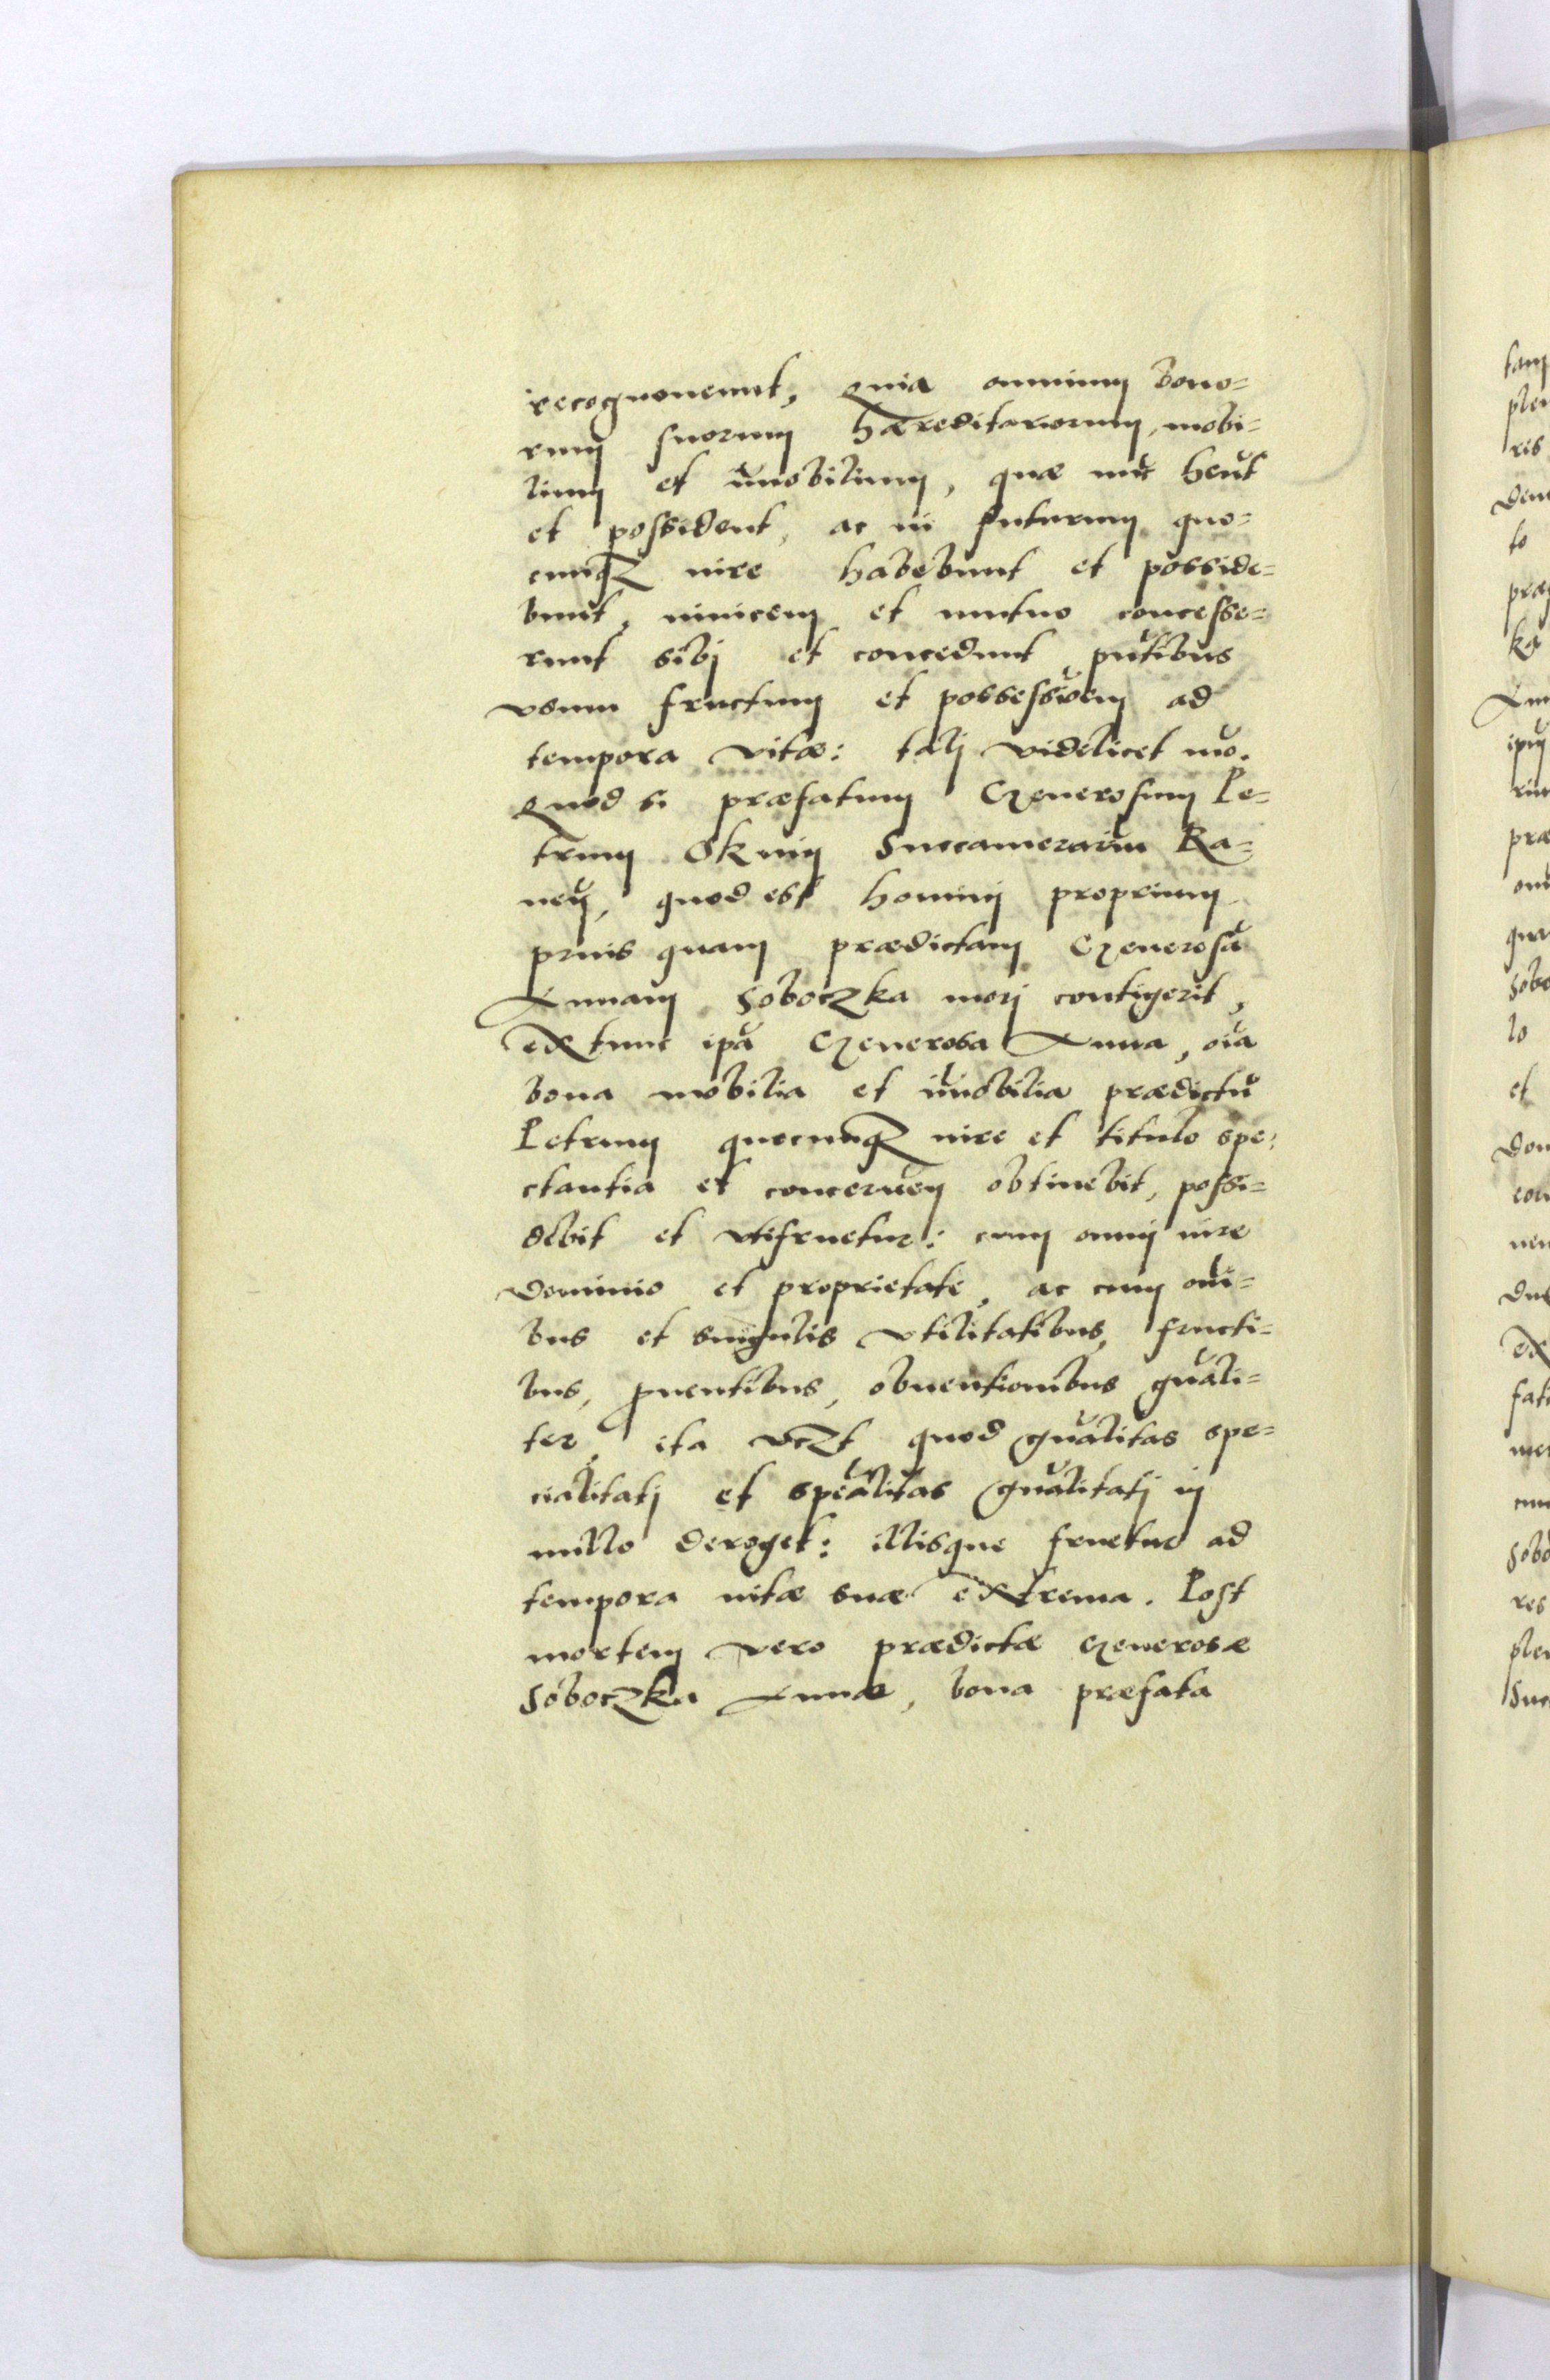 recognouerunt, Quia omnium bono=
rum suorum hæreditariorum, mobi=
lium et im̄obilium, quæ nūc hēnt
et possident, ac in futurum quo=
cunq3 iure habebunt et posside=
bunt, inuicem et mutuo concesse=
runt sibj et concedunt pūtibus
vsum fructum et possessiōem ad
tempora vitæ: talj videlicet mō.
Quod si præfatum Generosum Pe=
trum Okuń Succamerariū Ra=
uen̄, quod est hominj proprium
prius quam prædictam Generosā
Annam Soboczka morj contigerit,
Extunc ip̄a Generosa Anna, oīa
bona mobilia et im̄obilia prædictū
Petrum quocunq3 iure et titulo spe=
ctantia et concernēn obtinebit, possi=
debit et vtifruetur: cum omnj iure
dominio et proprietate, ac cum om̄i=
bus et singulis vtilitatibus, fructi=
bus, ꝓuentibus, obuentionibus gn̄ali=
ter, ita vcz̄t quod gn̄alitas spe=
cialitatj et spēalitas gn̄alitatj in
nullo deroget: illisque fruetur ad
tempora uitæ suæ extrema. Post
mortem vero prædictæ Generosæ
Soboczka Annæ, bona præfata